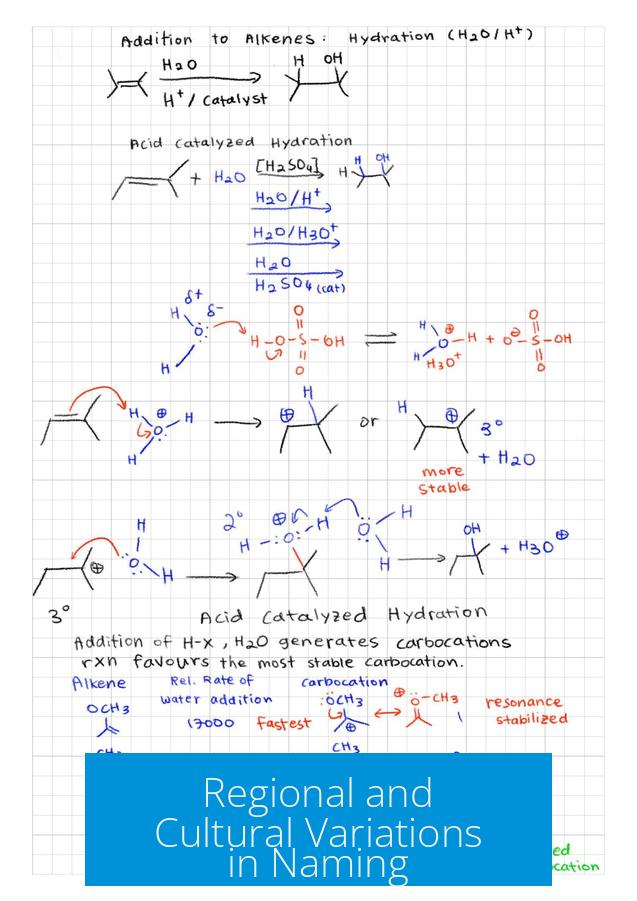 Addition to Alkenes: Hydration (H2O/H+)
H2O
H+/Catalyst
H OH
Acid Catalyzed Hydration
+ H2O [H2SO4] H H OH
H2O/H+
H2O/H3O+
H2O
H2SO4 (cat)
δ+ δ-
H O: H H-O-S-OH O O ⇌ H H O ⊕ -H + O⊖ -S-OH O O
H3O+
H ⊕ H O: H ⊕ H or H ⊕ 3°
+ H2O
more
stable
H O: H ⊕ 2° ⊕ H-O: H O: H H OH + H3O⊕
3°
Acid Catalyzed Hydration
Addition of H-X, H2O generates carbocations
rxn favours the most stable carbocation.
Alkene Rel. Rate of carbocation
water addition
OCH3 17000 Fastest :OCH3 ⊕ ↔ ⊕ O-CH3 resonance
stabilized
CH3
Regional and
Cultural Variations
in Naming
ed
cation